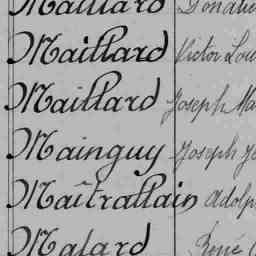 Maillard Donatien
Maillard Victor Lou
Maillard Joseph Ma
Mainguy Joseph Je
Maîtrallain Adolp
Malard René